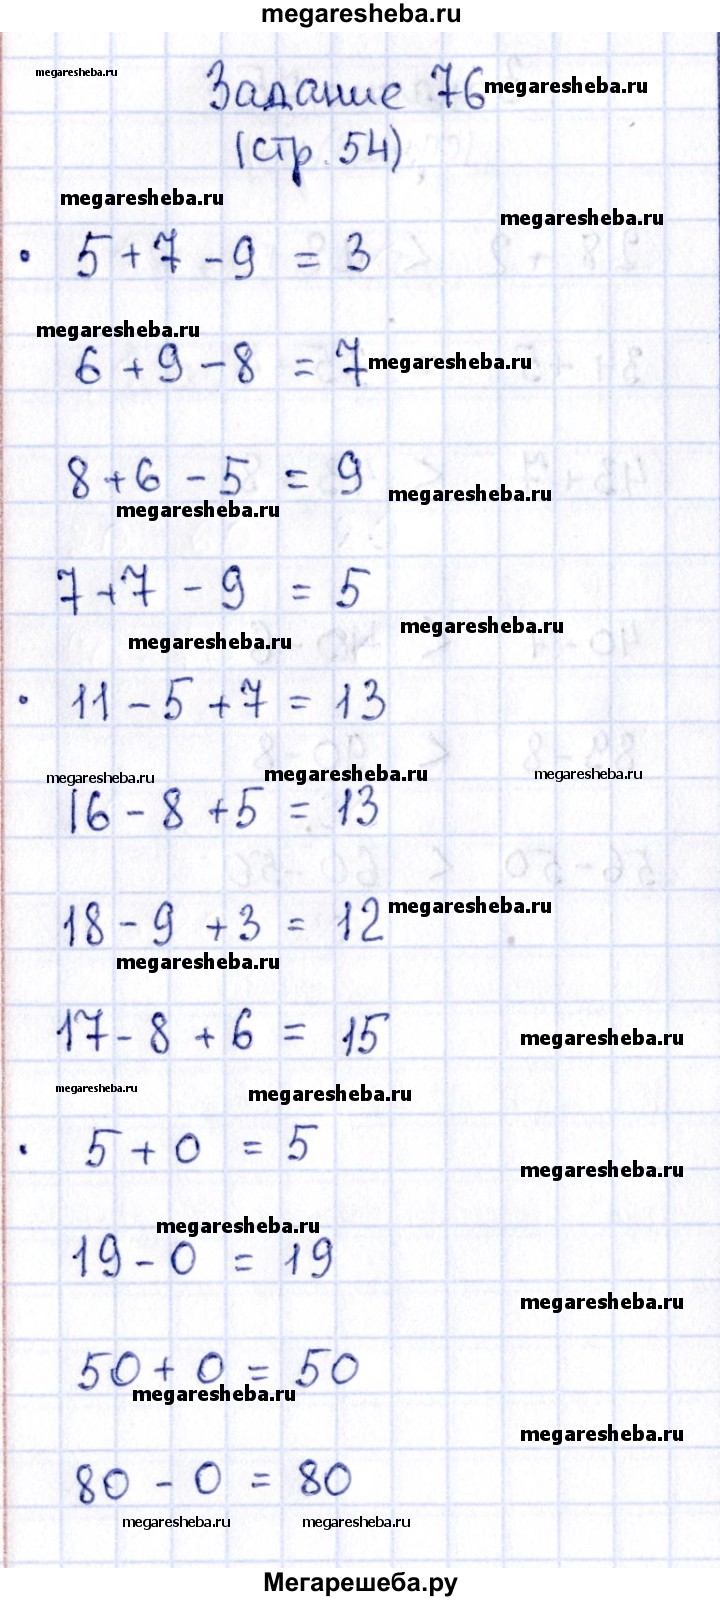 megaresheba.ru
megaresheba.ru
Задание 76
megaresheba.ru
(стр. 54)
megaresheba.ru
megaresheba.ru
• 5 + 7 - 9 = 3
megaresheba.ru
6 + 9 - 8 = 7
megaresheba.ru
8 + 6 - 5 = 9
megaresheba.ru
megaresheba.ru
7 + 7 - 9 = 5
megaresheba.ru
megaresheba.ru
• 11 - 5 + 7 = 13
megaresheba.ru megaresheba.ru megaresheba.ru
16 - 8 + 5 = 13
megaresheba.ru
18 - 9 + 3 = 12
megaresheba.ru
17 - 8 + 6 = 15
megaresheba.ru
megaresheba.ru
megaresheba.ru
• 5 + 0 = 5
megaresheba.ru
megaresheba.ru
19 - 0 = 19
megaresheba.ru
50 + 0 = 50
megaresheba.ru
megaresheba.ru
80 - 0 = 80
megaresheba.ru megaresheba.ru
Мегарешеба.ру